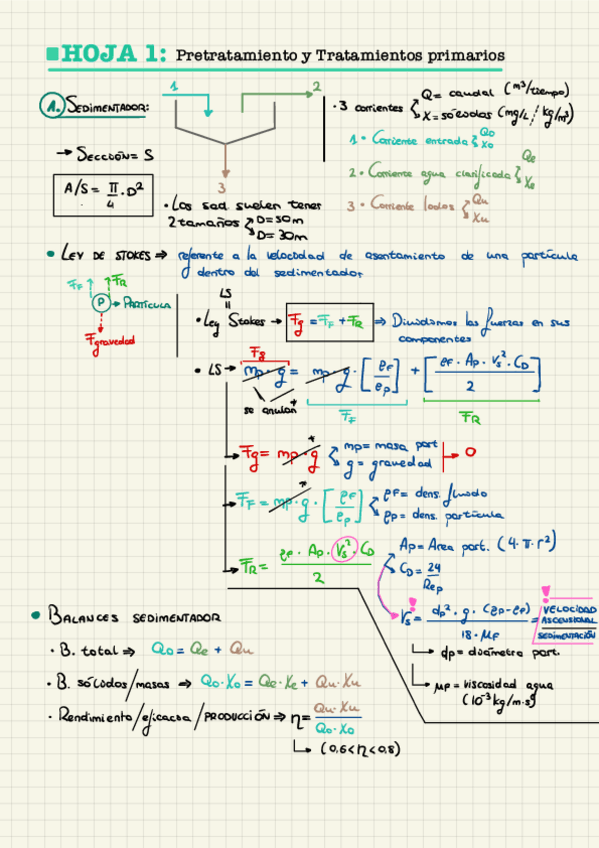 HOJA 1: Pretratamiento y Tratamientos primarios
1. SEDIMENTADOR:
1
2
3
→ SECCIÓN = S
A/S = π/4 · D²
· 3 corrientes
Q = caudal (m³/tiempo)
X = sólidos (mg/L / kg/m³)
1 · Corriente entrada Qo Xo
2 · Corriente agua clarificada Qe Xe
3 · Corriente lodos Qu Xu
· Los sad suelen tener
2 tamaños D = 50m
D = 30m
· LEY DE STOKES ⇒ referente a la velocidad de asentamiento de una partícula
dentro del sedimentador
FF FR
P → PARTÍCULA
Fgravedad
LS
=
· Ley Stokes → Fg = FF + FR ⇒ Dividimos las fuerzas en sus
componentes
Fg
· LS → mp·g = mp·g · [ρF/ρp] + [ρF · Ap · Vs² · CD / 2]
se anulan
FF
FR
→ Fg = mp·g
mp = masa part
g = gravedad
→ 0
→ FF = mp·g · [ρF/ρp]
ρF = dens. fluido
ρp = dens. partícula
→ FR = ρF · Ap · Vs² · CD / 2
Ap = Area part. (4·π·r²)
CD = 24/Rep
Vs = dp² · g · (ρp-ρF) / 18·μF = VELOCIDAD
ASCENSIONAL
SEDIMENTACIÓN
→ dp = diámetro part.
→ μF = viscosidad agua
(10⁻³ kg/m·s)
· BALANCES SEDIMENTADOR
· B. total ⇒ Qo = Qe + Qu
· B. sólidos/masas ⇒ Qo·Xo = Qe·Xe + Qu·Xu
· Rendimiento/eficacia/PRODUCCIÓN ⇒ η = Qu·Xu / Qo·Xo
→ (0,6<η<0,8)